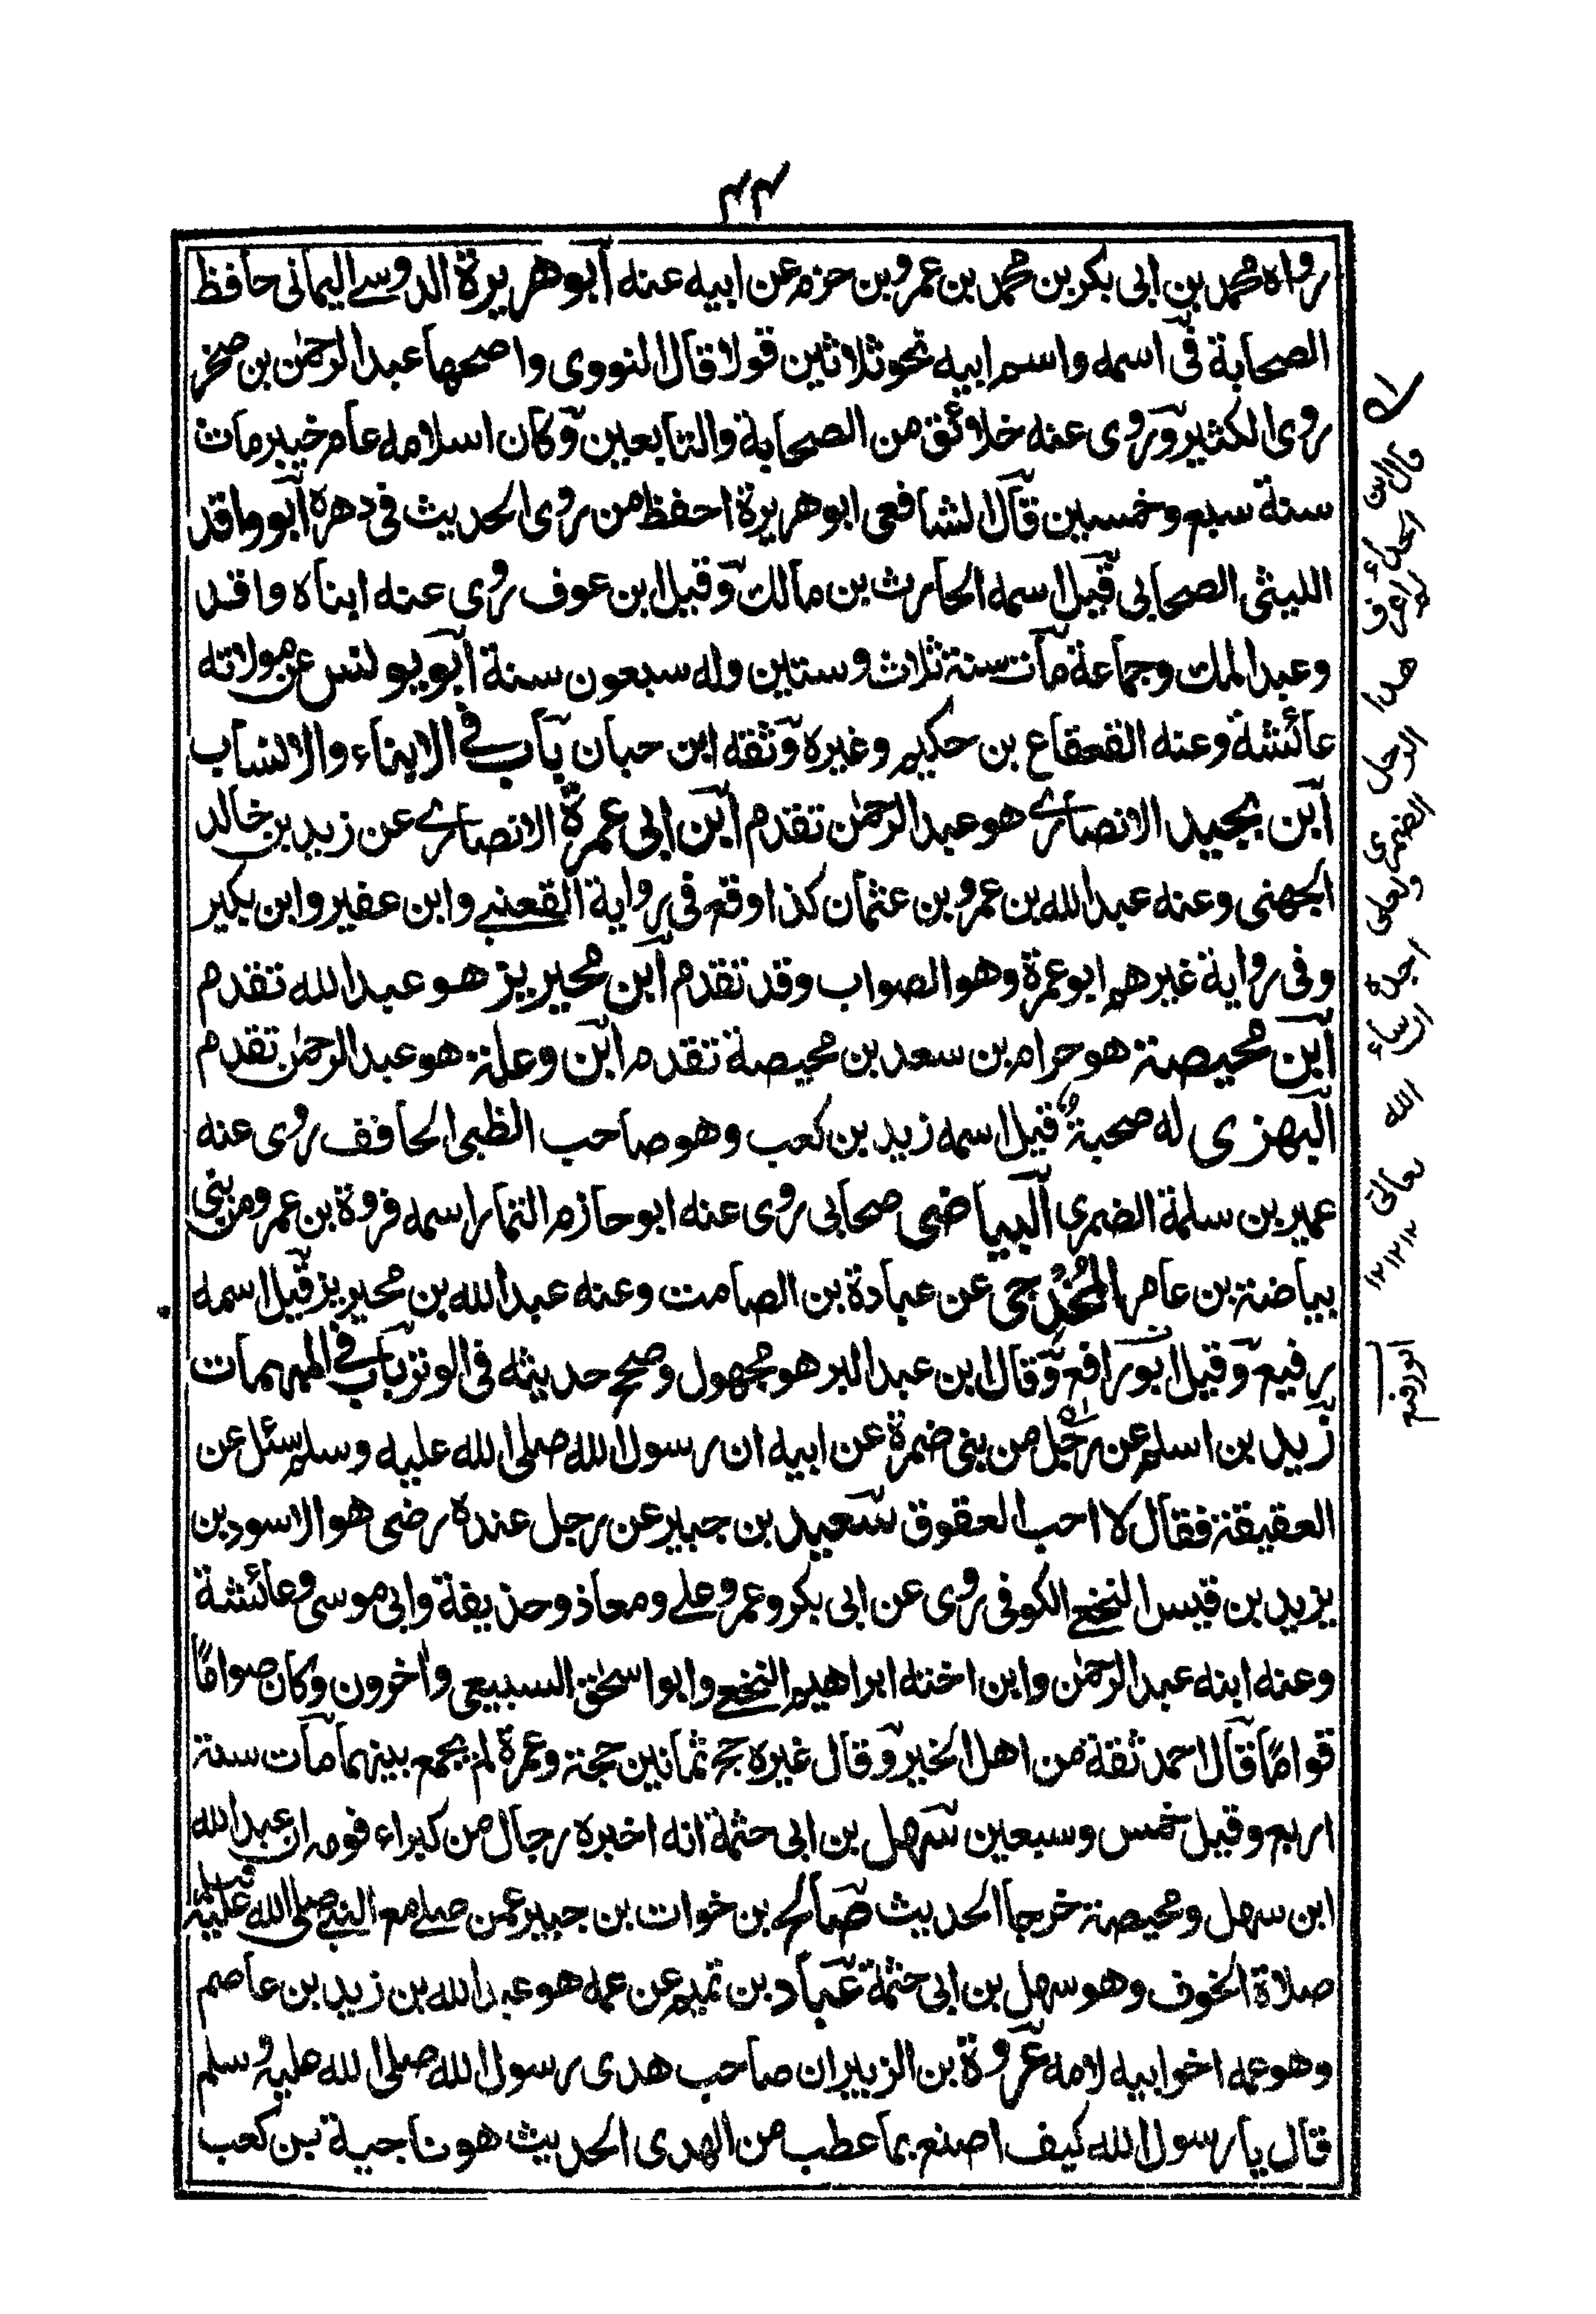 ٤٤
رواه محمد بن ابى بكر بن محمد بن عمرو بن حزم عن ابيه عنه ابو هريرة الدوسے اليمانى حافظ
الصحابة فى اسمه واسم ابيه نحو ثلاثين قولا قال النووى واصحها عبد الرحمٰن بن صخر
روى الكثير وروى عنه خلائق من الصحابة والتابعين وكان اسلامه عام خيبر مات
سنة سبع وخمسين قال الشافعى ابو هريرة احفظ من روى الحديث فى دهره ابو واقد
الليثى الصحابى قيل اسمه الحارث بن مالك وقيل ابن عوف روى عنه ابناه واقد
وعبد الملك وجماعة مات سنة ثلاث وستين وله سبعون سنة ابو يونس عن مولاته
عائشة وعنه القعقاع بن حكيم وغيره وثقه ابن حبان باب فى الابناء والانساب
ابن بجيد الانصارے هو عبد الرحمٰن تقدم ابن ابى عمرة الانصارے عن زيد بن خالد
الجهنى وعنه عبد الله بن عمرو بن عثمان كذا وقع فى رواية القعنبے وابن عفير وابن بكير
وفى رواية غيرهم ابو عمرة وهو الصواب وقد تقدم ابن محيريز هو عبد الله تقدم
ابن محيصة هو حرام بن سعد بن محيصة تقدم ابن وعلة هو عبد الرحمٰن تقدم
البهزى له صحبة قيل اسمه زيد بن كعب وهو صاحب الظبى الحاقف روى عنه
عمير بن سلمة الضمرى البياضى صحابى روى عنه ابو حازم التمار اسمه فروة بن عمرو من بنى
بياضة بن عامر المُخْدجى عن عبادة بن الصامت وعنه عبد الله بن محيريز قيل اسمه
رفيع وقيل ابو رافع وقال ابن عبد البر هو مجهول وصحح حديثه فى الوتر باب فى المبهمات
زيد بن اسلم عن رجل من بنى ضمرة عن ابيه ان رسول الله صلى الله عليه وسلم سئل عن
العقيقة فقال لا احب العقوق سعيد بن جبير عن رجل عنده رضى هو الاسود بن
يزيد بن قيس النخعے الكوفى روى عن ابى بكر وعمر وعلے ومعاذ وحذيفة وابى موسى وعائشة
وعنه ابنه عبد الرحمٰن وابن اخته ابراهيم النخعے وابو اسحٰق السبيعى واٰخرون وكان صواماً
قواماً قال احمد ثقة من اهل الخير وقال غيره حج ثمانين حجة وعمرة لم يجمع بينهما مات سنة
اربع وقيل خمس وسبعين سهل بن ابى حثمة انه اخبره رجال من كبراء قومه ان عبد الله
ابن سهل ومحيصة خرجا الحديث صالح بن خوات بن جبير عمن صلے مع النبے صلى الله عليه وسلم
صلاة الخوف وهو سهل بن ابى حثمة عباد بن تميم عن عمه هو عبد الله بن زيد بن عاصم
وهو عمه اخو ابيه لامه عروة بن الزبير ان صاحب هدى رسول الله صلى الله عليه وسلم
قال يا رسول الله كيف اصنع بما عطب من الهدى الحديث هو ناجية بن كعب
قال ابن
الحذاء
لم اعرف
هذا
الرجل
الضمرى
ولعلى
اجده
ان شاء
الله
تعالى
١٢ ١٢ ١٢
ابو رفيع